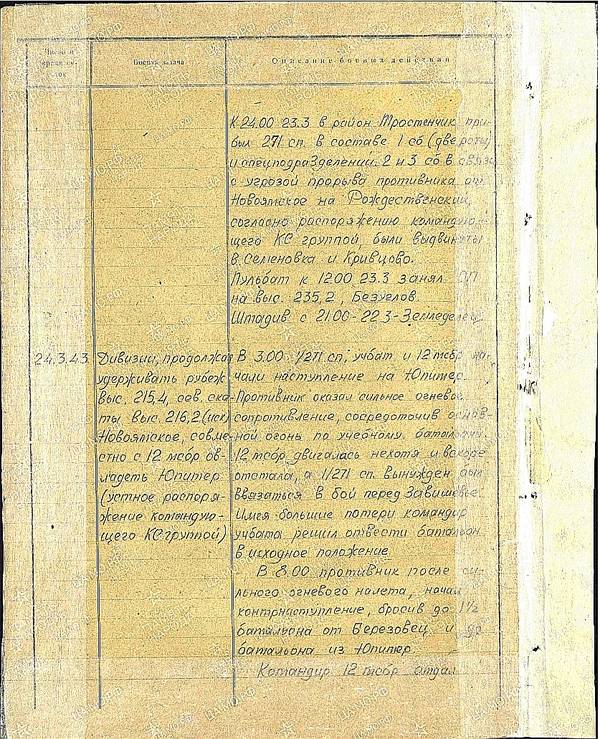 Число и
время су-
ток
Боевая задача
Описание боевых действий
К 24.00 23.3 в район Тростенчик при-
был 271 сп. в составе 1 сб (две роты)
и спецподразделений. 2 и 3 сб в связи
с угрозой прорыва противника от
Новоямское на Рождественский,
согласно распоряжению командую-
щего КС группой, были выдвинуты
в Семеновка и Кривцово.
Пульбат к 12.00 23.3 занял ОП
на выс. 235,2, Безуглов.
Штадив с 21.00-22.3-Земледелец
24.3.43.
Дивизии, продолжая
удерживать рубеж
выс. 215,4, сев. ска-
ты выс. 216,2 (иск)
Новоямское, совме-
стно с 12 тсбр ов-
ладеть Юпитер
(устное распоря-
жение командую-
щего КС группой)
В 3.00 1/271 сп, учбат и 12 тсбр на-
чали наступление на Юпитер.
Противник оказал сильное огневое
сопротивление, сосредоточив основ-
ной огонь по учебному батальону.
12 тсбр двигалась нехотя и вскоре
отстала, а 1/271 сп. вынужден был
ввязаться в бой перед
Имея большие потери командир
учбата решил отвести батальон
в исходное положение
В 8.00 противник после си-
льного огневого налета, начал
контрнаступление, бросив до 1½
батальона от Березовец и до
батальона из Юпитер
Командир 12 тсбр отдал